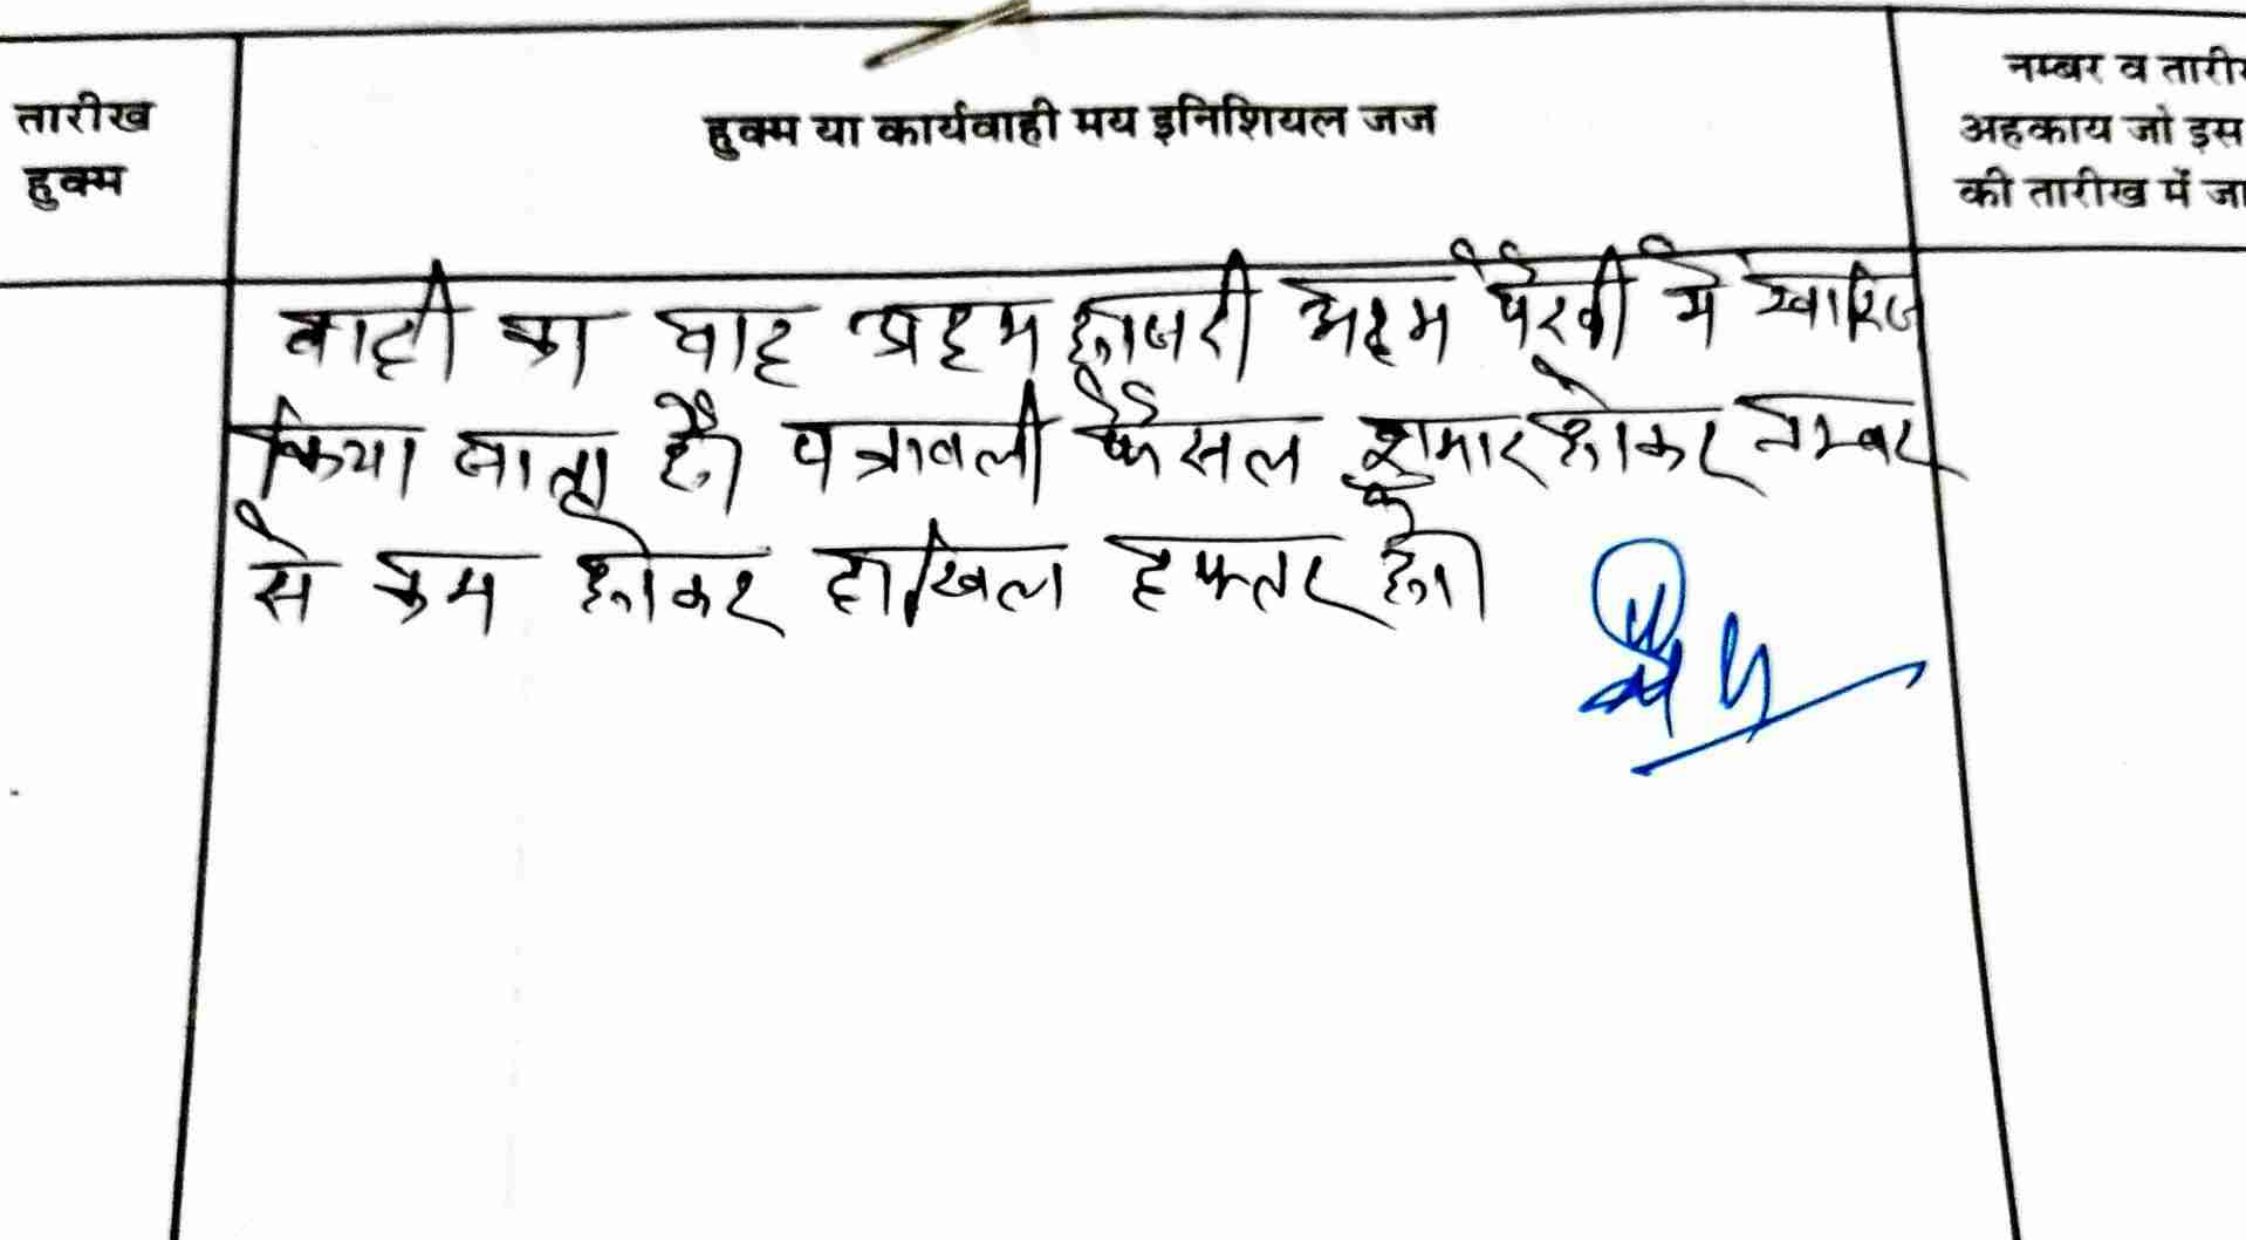 तारीख
हुक्म
हुक्म या कार्यवाही मय इनिशियल जज
नम्बर व तारी
अहकाय जो इस
की तारीख में जा
वादी का वाद अदम हाजरी अदम पैरवी में खारिज
किया जाता है। पत्रावली फैसल शुमार होकर नम्बर
से कम होकर दाखिल दफ्तर हो।